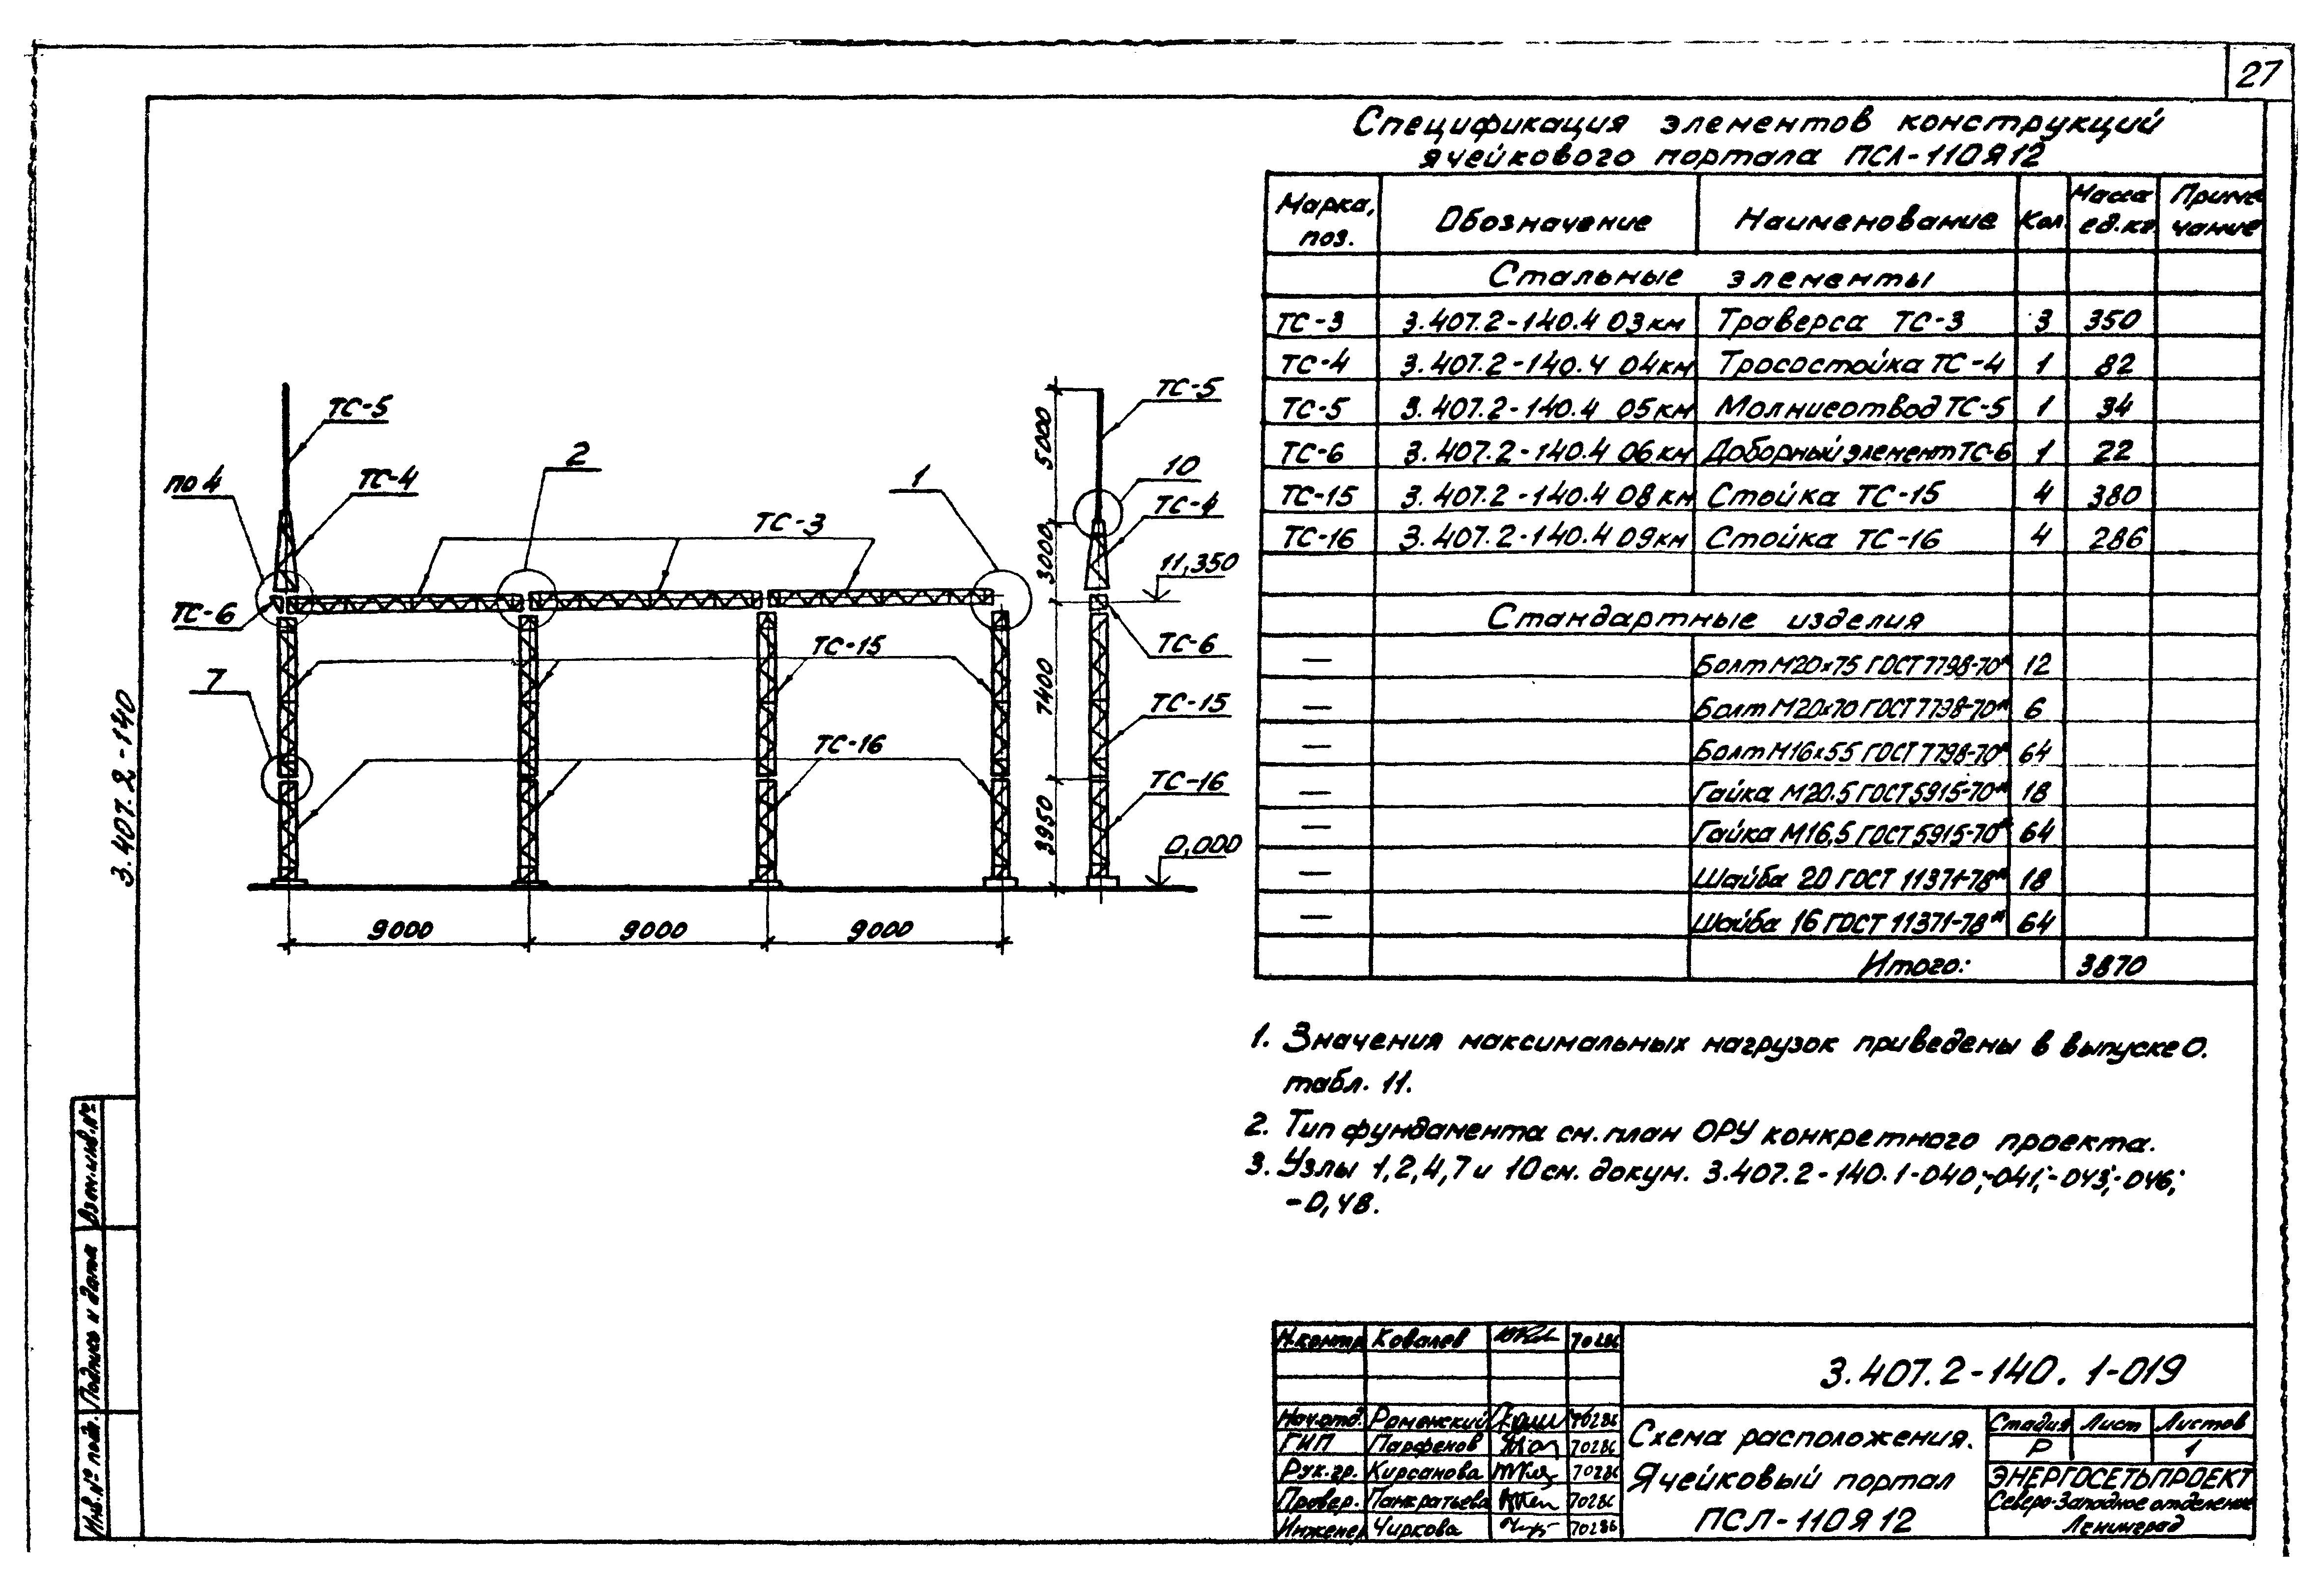 27
Спецификация элементов конструкций
ячейкового портала ПСЛ-110Я12
Марка, поз. Обозначение Наименование Кол Масса ед.кг Приме чание
Стальные элементы
ТС-3 3.407.2-140.4 03км Траверса ТС-3 3 350
ТС-4 3.407.2-140.4 04км Тросостойка ТС-4 1 82
ТС-5 3.407.2-140.4 05км Молниеотвод ТС-5 1 34
ТС-6 3.407.2-140.4 06км Доборный элемент ТС-6 1 22
ТС-15 3.407.2-140.4 08км Стойка ТС-15 4 380
ТС-16 3.407.2-140.4 09км Стойка ТС-16 4 286
Стандартные изделия
— Болт М20х75 ГОСТ 7798-70* 12
— Болт М20х70 ГОСТ 7798-70* 6
— Болт М16х55 ГОСТ 7798-70* 64
— Гайка М20.5 ГОСТ 5915-70* 18
— Гайка М16,5 ГОСТ 5915-70* 64
— Шайба 20 ГОСТ 11371-78* 18
— Шайба 16 ГОСТ 11371-78* 64
Итого: 3870
ТС-5
ТС-5
2
10
по 4
ТС-4
1
ТС-4
ТС-3
11,350
ТС-6
ТС-15
ТС-6
7
ТС-15
ТС-16
ТС-16
0,000
5000
3000
7400
3950
9000 9000 9000
3.407.2-140
1. Значения максимальных нагрузок приведены в выпуске 0.
табл. 11.
2. Тип фундамента см. план ОРУ конкретного проекта.
3. Узлы 1,2,4,7 и 10 см. докум. 3.407.2-140.1-040;-041;-043;-046;
-0,48.
Взам.инв.№
Подпись и дата
Инв.№ подл.
Н.контр Ковалев 70286
3.407.2-140. 1-019
Нач.отд. Роменский 70286
ГИП Парфенов 70286
Рук.гр. Кирсанова 70286
Провер. Панкратьева 70286
Инженер Чиркова 70286
Схема расположения.
Ячейковый портал
ПСЛ-110Я12
Стадия Лист Листов
Р 1
ЭНЕРГОСЕТЬПРОЕКТ
Северо-Западное отделение
Ленинград